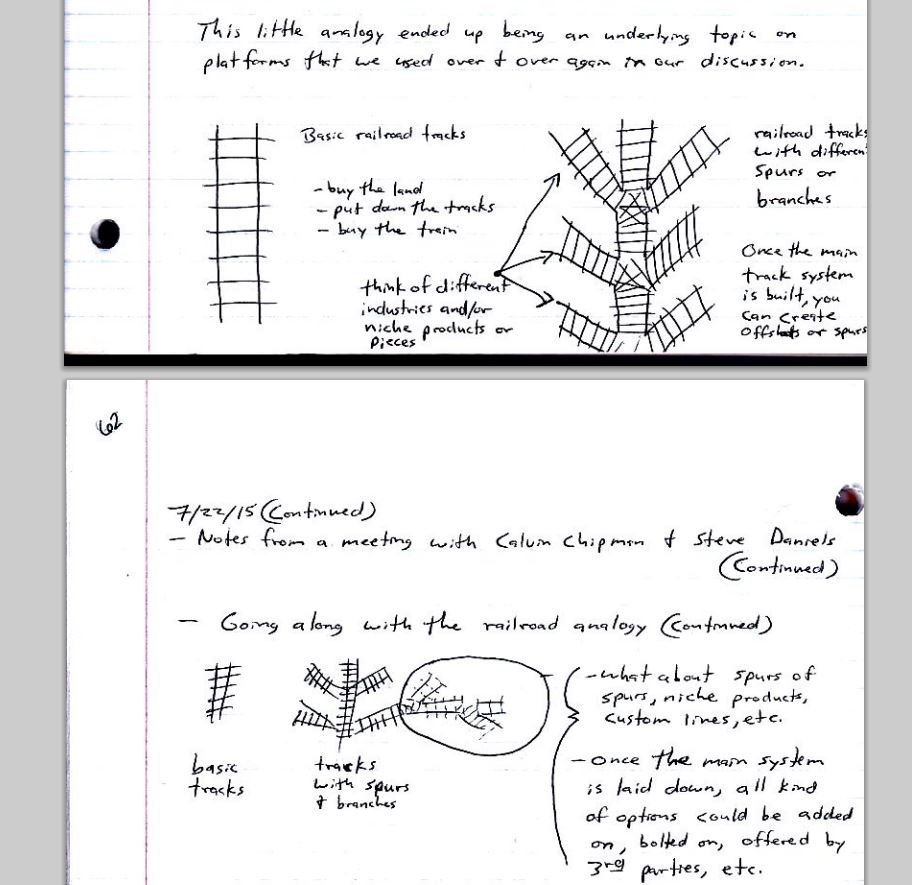 This little analogy ended up being an underlying topic on
platforms that we used over & over again in our discussion.
Basic railroad tracks
- buy the land
- put down the tracks
- buy the train
think of different
industries and/or
niche products or
pieces
railroad tracks
with differen
spurs or
branches
Once the main
track system
is built, you
can create
offshots or spurs
62
7/22/15 (Continued)
- Notes from a meeting with Calvin Chipman & Steve Daniels
(Continued)
- Going along with the railroad analogy (Continued)
basic
tracks
tracks
with spurs
& branches
- what about spurs of
spurs, niche products,
custom lines, etc.
- once the main system
is laid down, all kind
of options could be added
on, bolted on, offered by
3rd parties, etc.